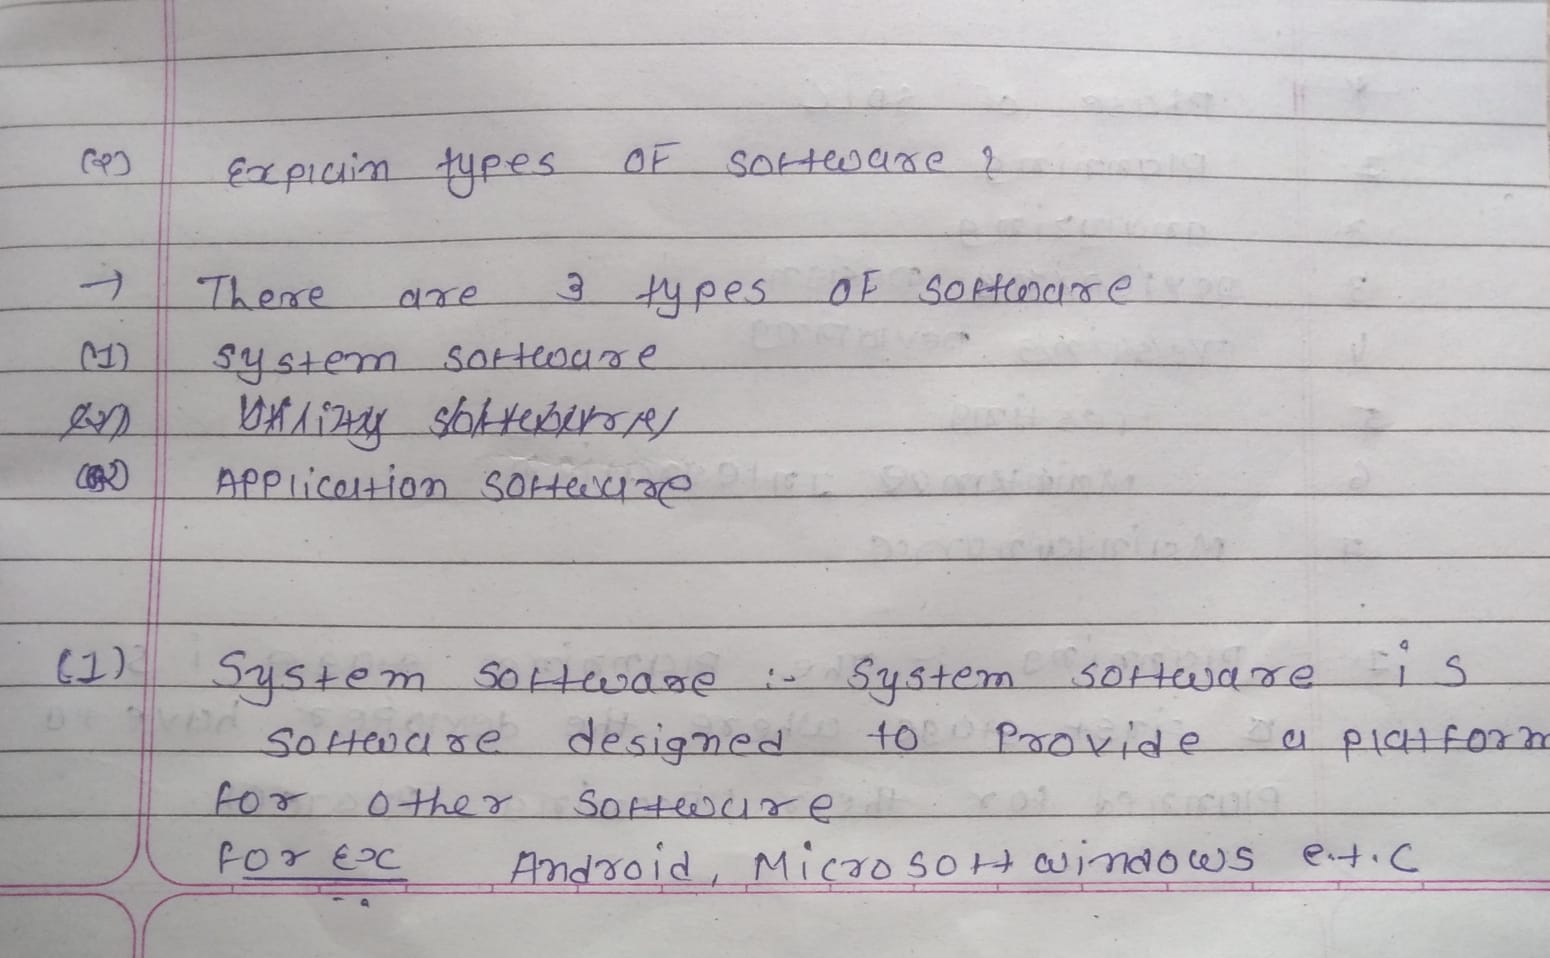 (Q) Explain types OF software ?
→ There are 3 types OF software
(1) System software
Utility software
(2) Application software
(1) System software :- System software is
software designed to Provide a platform
for other software
for Ex Android, Microsoft windows e.t.c